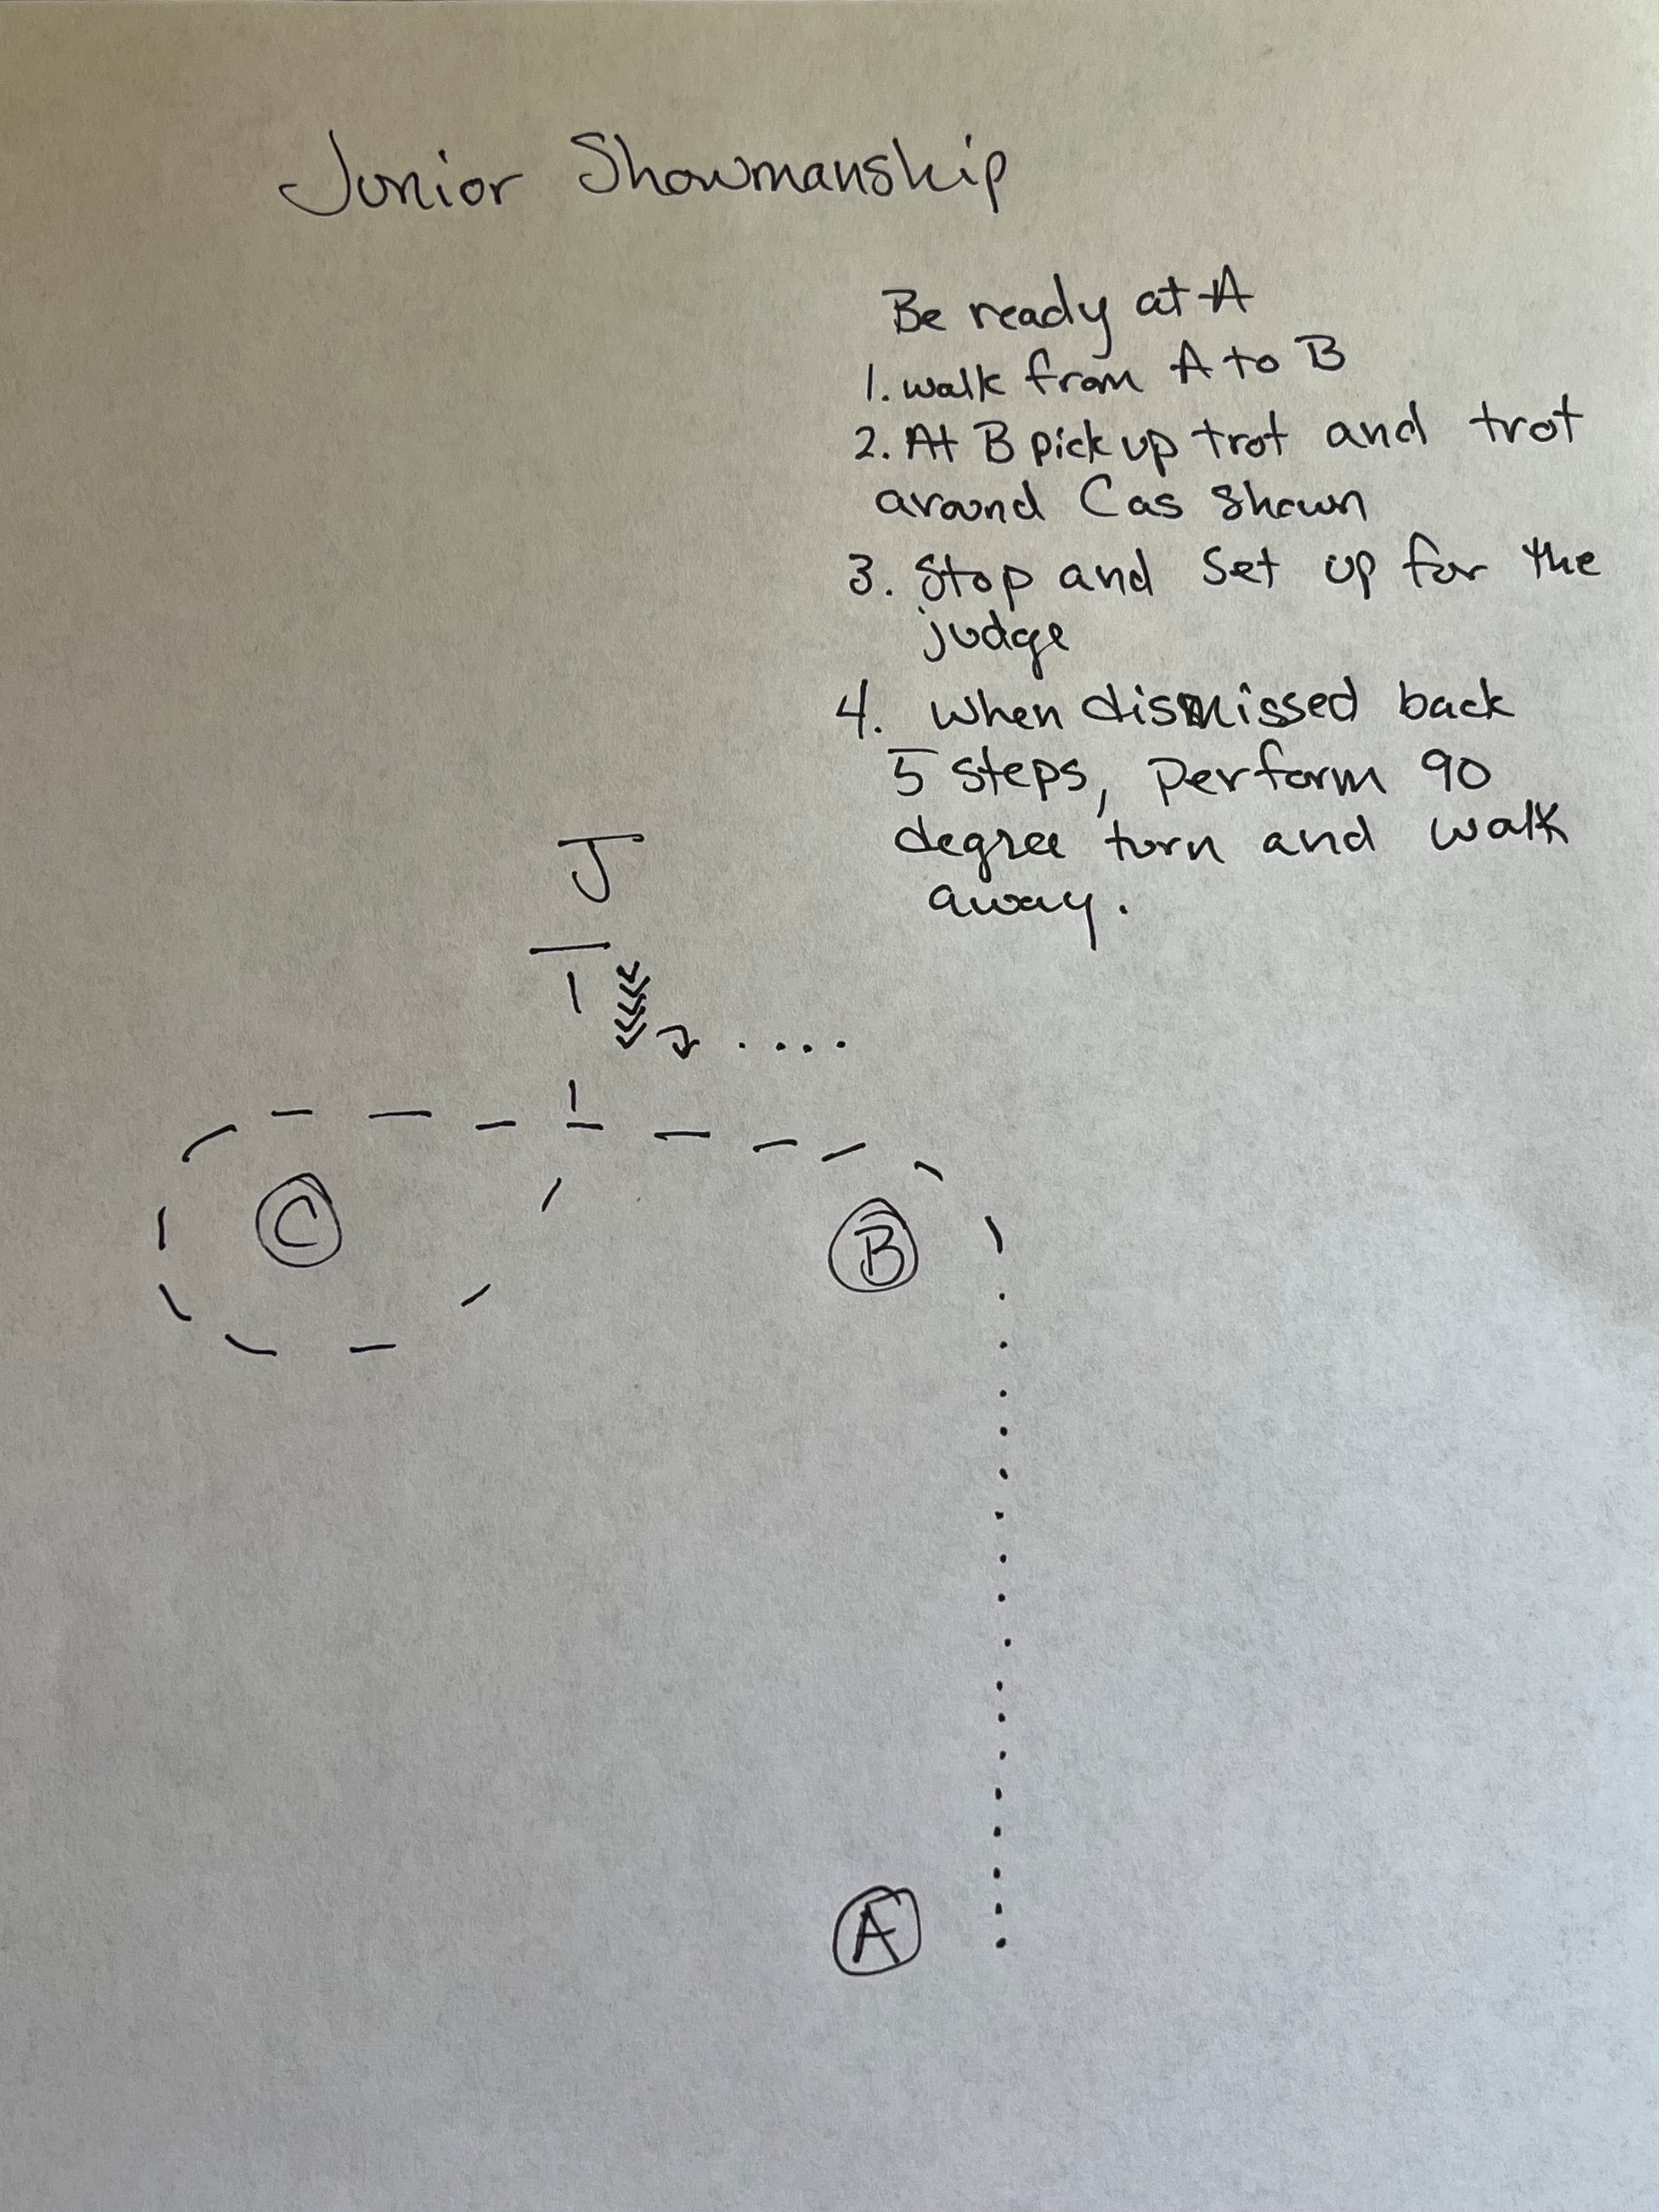 Junior Showmanship
Be ready at A
1. walk from A to B
2. At B pick up trot and trot
around C as shown
3. Stop and Set up for the
judge
4. When dismissed back
5 steps, perform 90
degree turn and walk
away.
J
C
B
A